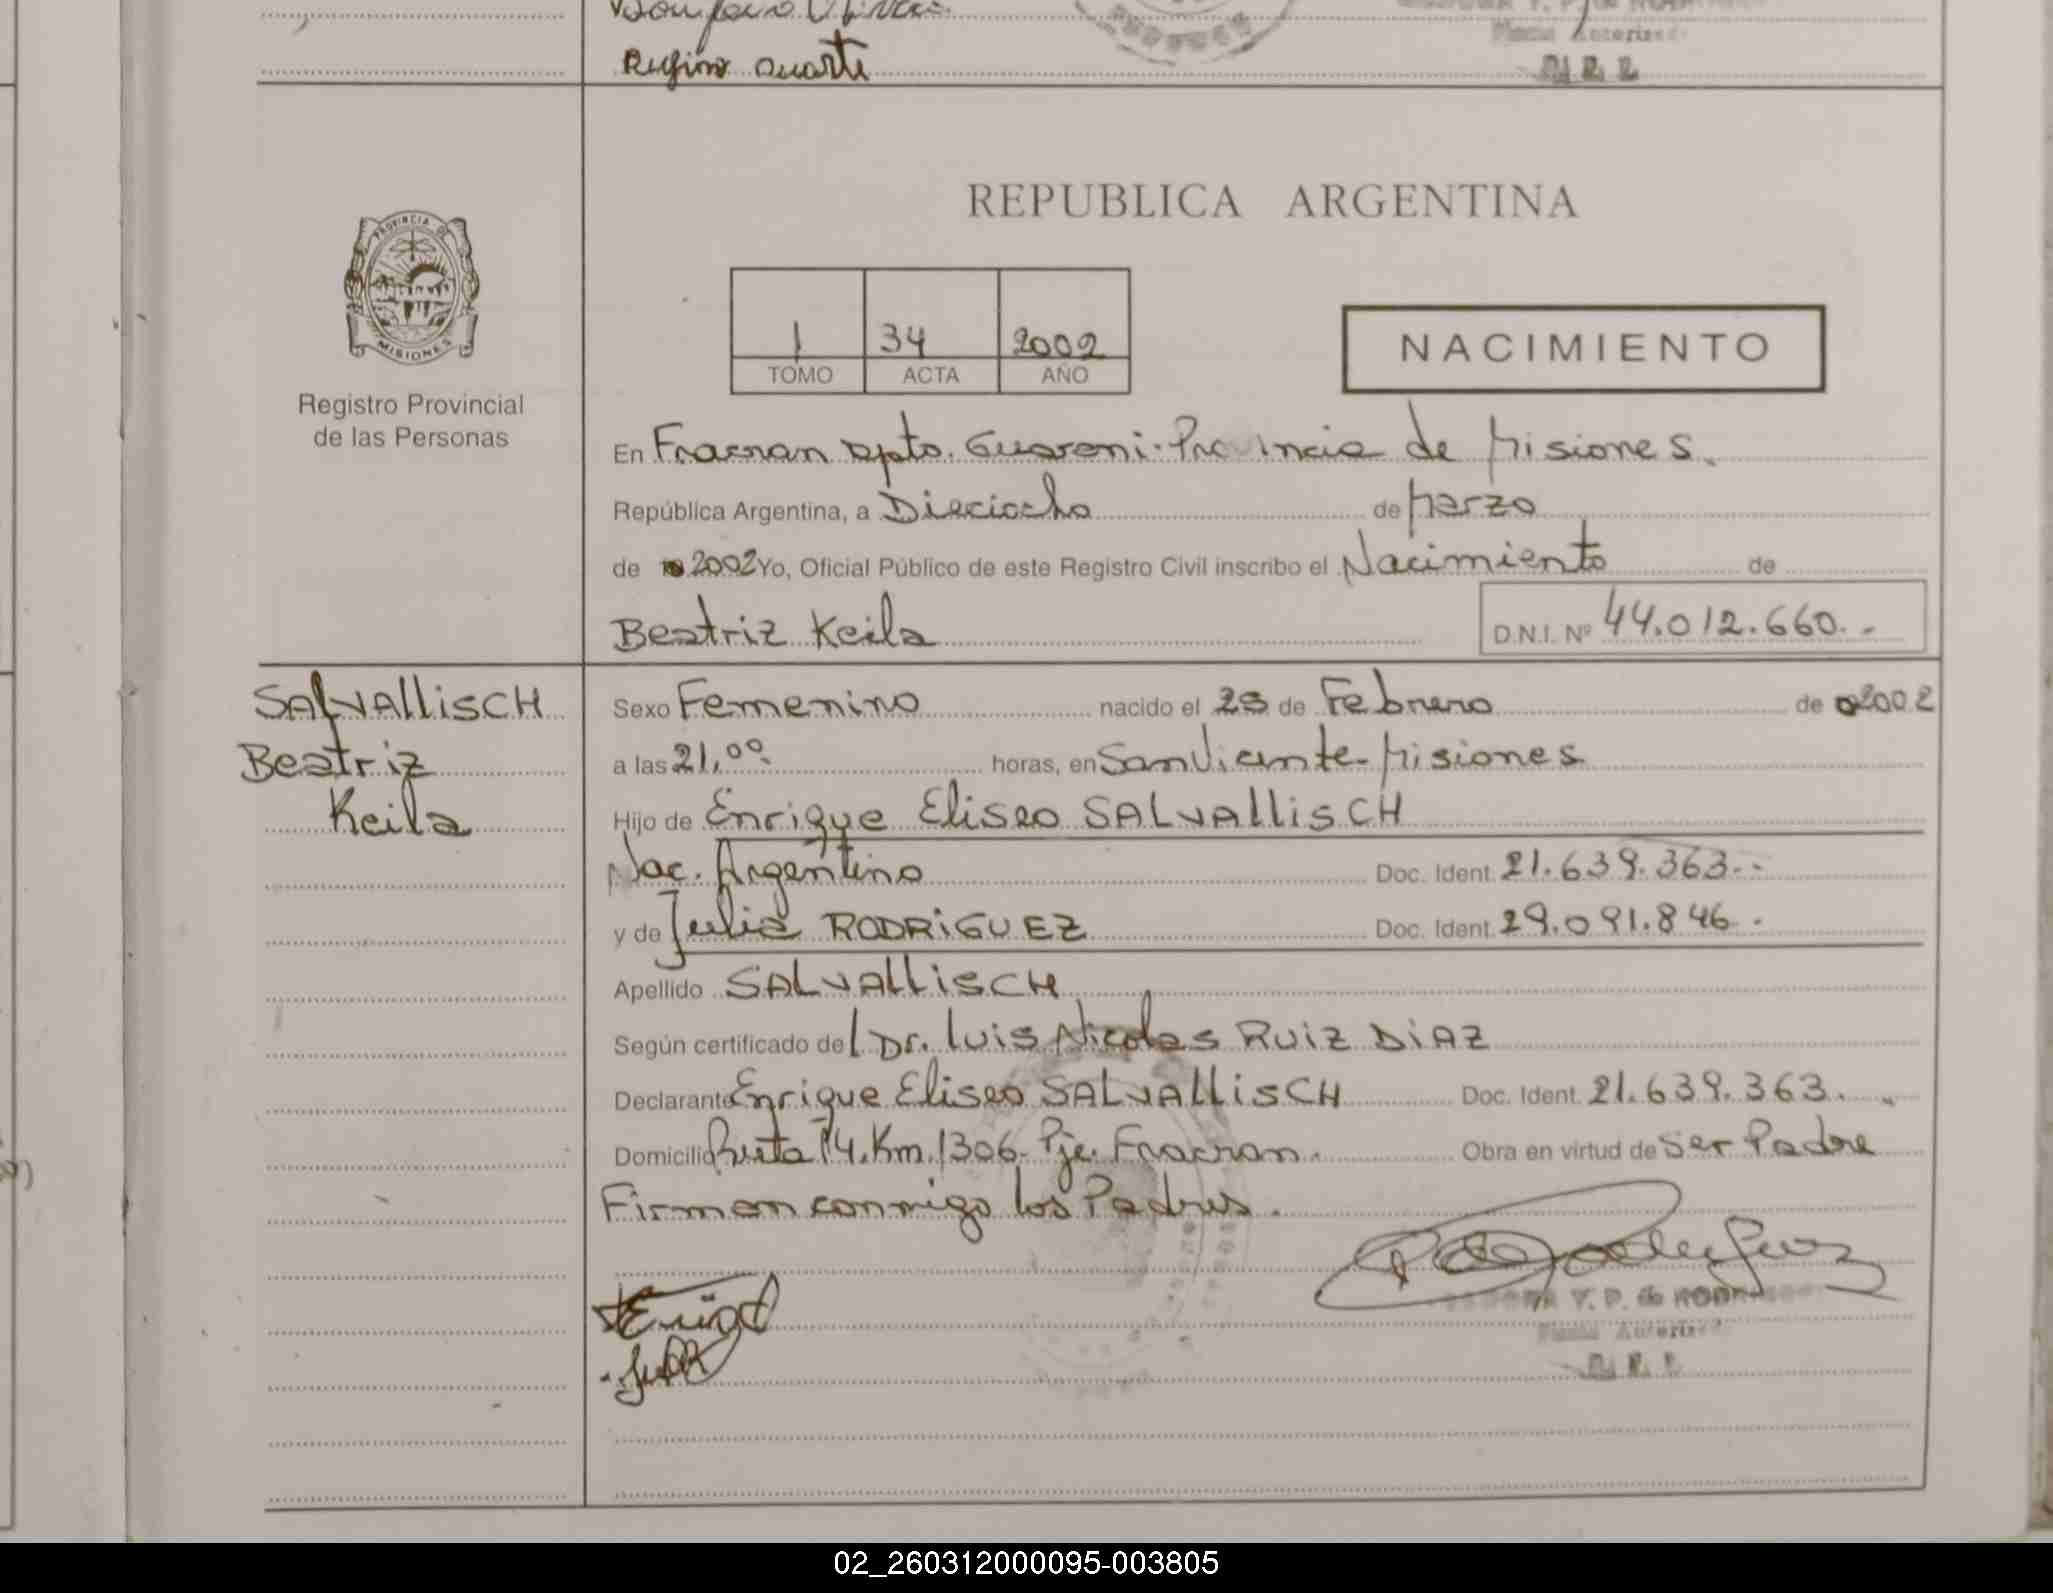 Rufino Duarte
REPUBLICA ARGENTINA
PROVINCIA DE
MISIONES
Registro Provincial
de las Personas
1 34 2002
TOMO ACTA AÑO
NACIMIENTO
En Fracran Dpto. Guarani. Provincia de Misiones.
República Argentina, a Dieciocho de Marzo
de 2002 Yo, Oficial Público de este Registro Civil inscribo el Nacimiento de
Beatriz Keila D.N.I. Nº 44.012.660.-
SALVAllisCH
Beatriz
Keila
Sexo Femenino nacido el de Febrero de 2002
a las 21,00 horas, en San Vicente-Misiones
Hijo de Enrique Eliseo SALVAllisCH
Nac. Argentino Doc. Ident. 21.639.363.-
y de Julia RODRiGUEZ Doc. Ident. 29.091.846.
Apellido SALVAllisCH
Según certificado del Dr. Luis Nicolas RUiZ DiAZ
Declarante Enrique Eliseo SALVAllisCH Doc. Ident. 21.639.363.
Domicilio Ruta 14. Km. 1306- Pje. Fracran. Obra en virtud de Ser Padre
Firman conmigo los Padres.
02_260312000095-003805